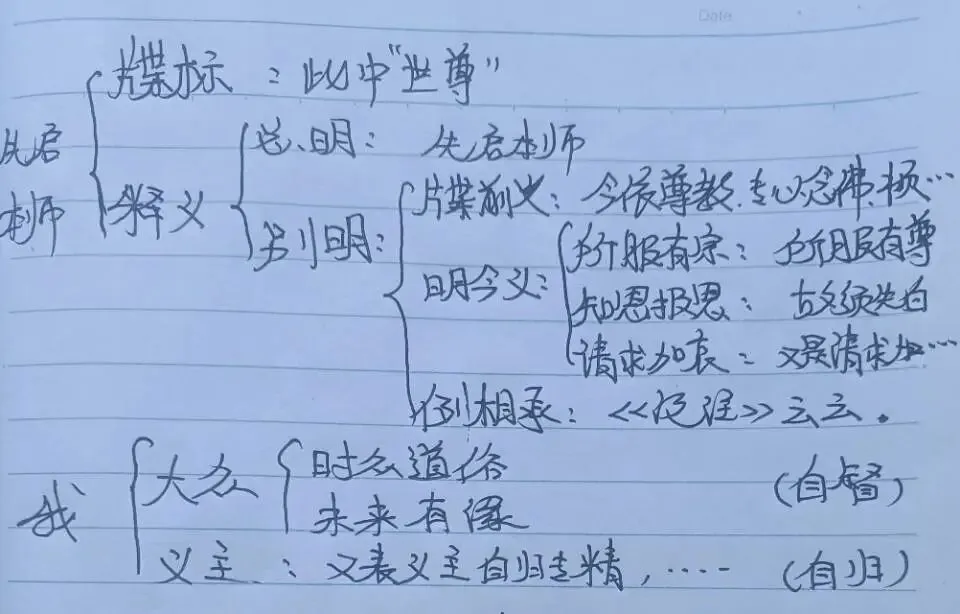 Date
先启本师
牒标：此中“世尊”
释义
总明：先启本师
别明：
牒前文：今依尊教，专心念佛，极…
明今义：
所服有宗：所服有尊
知恩报恩：故须先白
请求加哀：又是请求加…
例相承：《泥洹》云云。
我
大众
时众道俗
未来有缘
（自督）
义主：又表义主自归专精，……（自归）